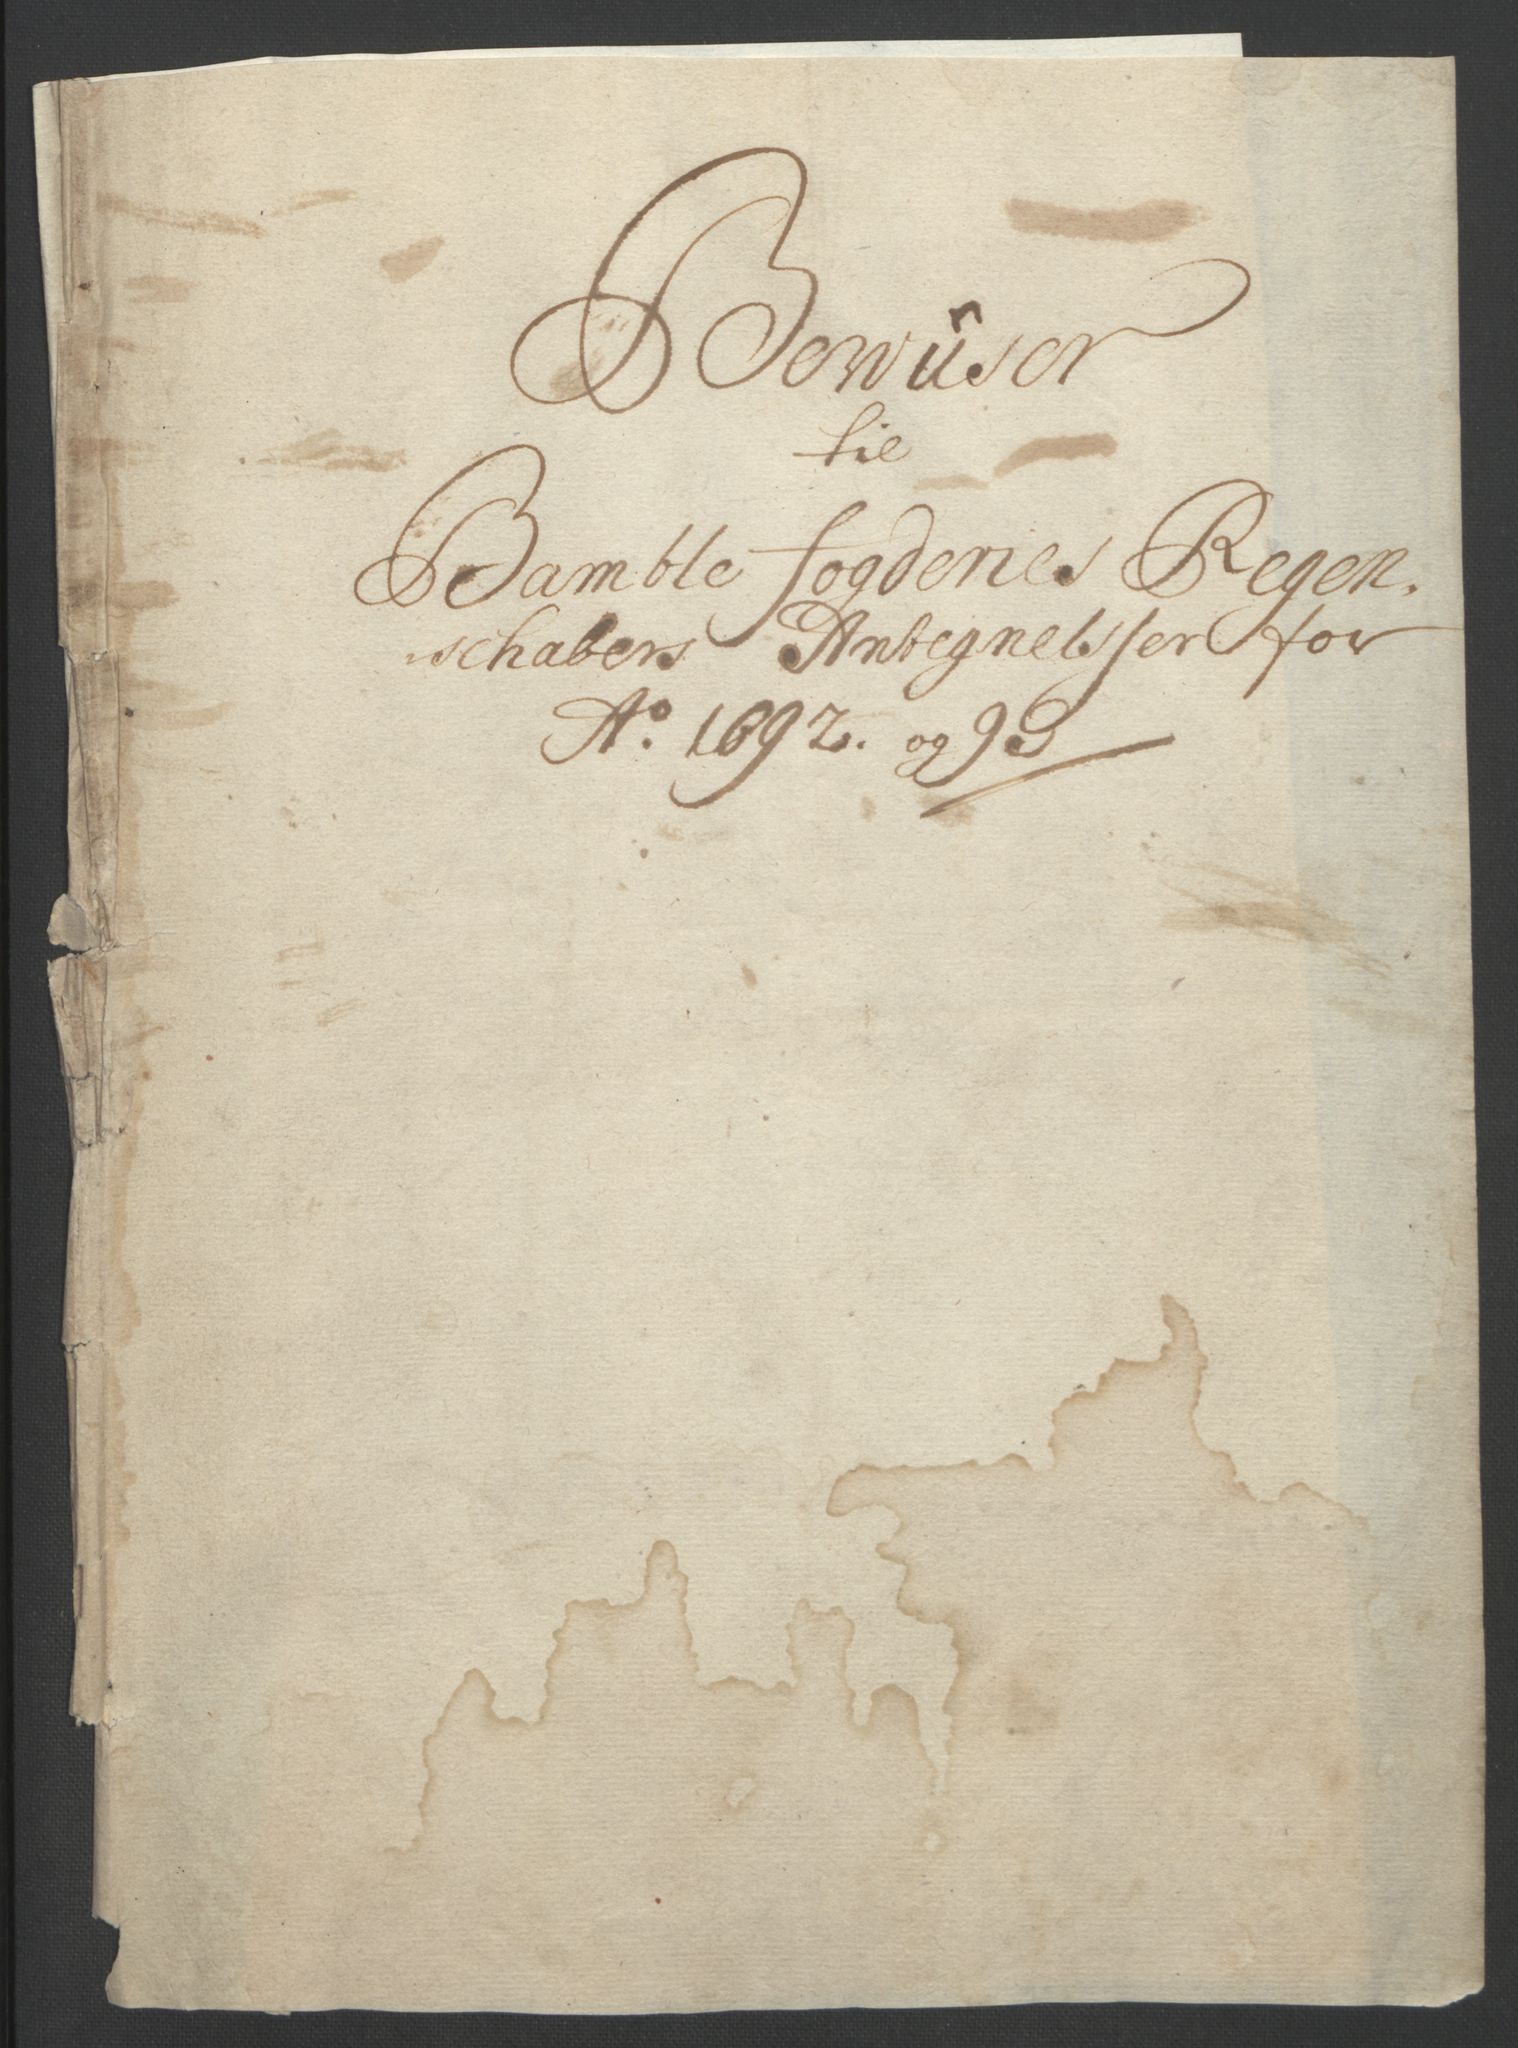 Bewüser
til
Bamble fogderies Regen.
schabers Antegnelsser for
Ao. 1692. og 93